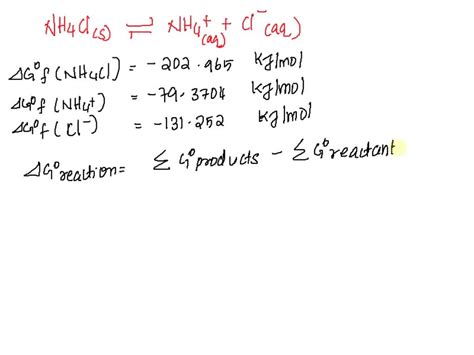 NH4Cl(s) ⇌ NH4+(aq) + Cl-(aq)
ΔG°f (NH4Cl) = -202.965 KJ/mol
ΔG°f (NH4+) = -79.3704 KJ/mol
ΔG°f (Cl-) = -131.252 KJ/mol
ΔG°reaction = Σ G°products - Σ G°reactant